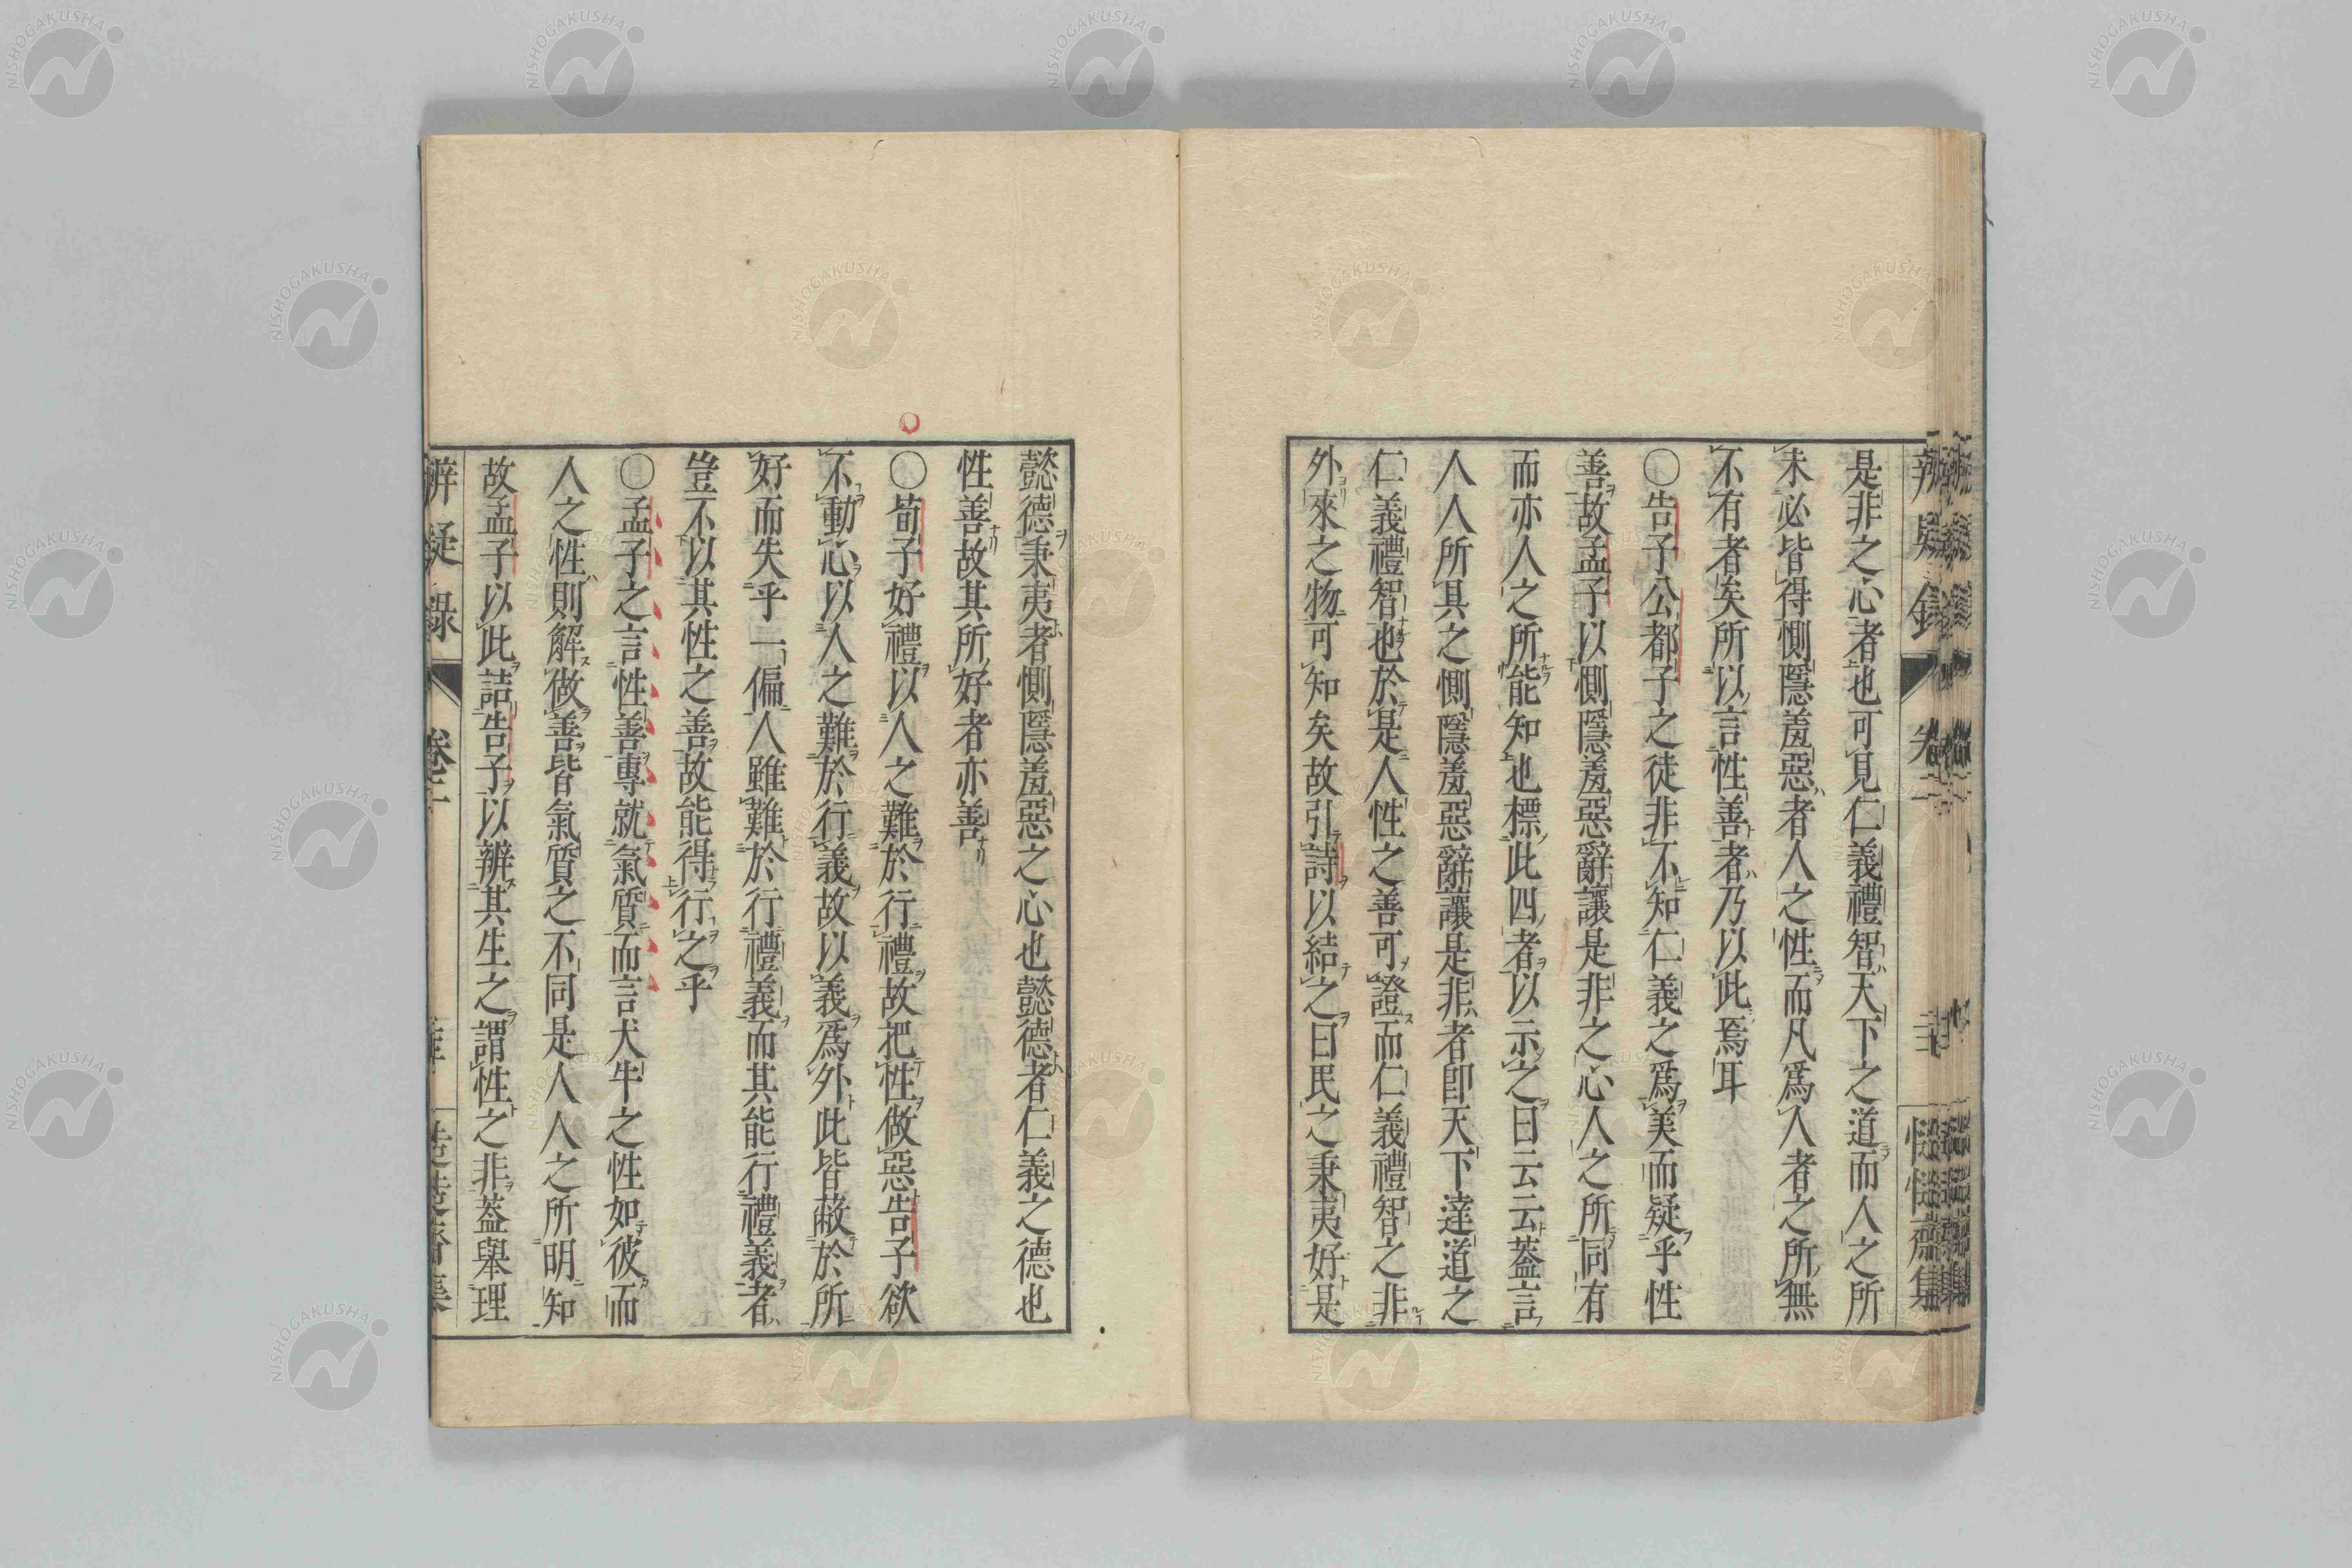 是非之心者也可見仁義禮智天下之道而人之所
未必皆得惻隱羞惡者人之性而凡爲人者之所無
不有者矣所以言性善者乃以此焉耳
〇告子公都子之徒非不知仁義之爲美而疑乎性
善故孟子以惻隱羞惡辭讓是非之心人之所同有
而亦人之所能知也標此四者以示之曰云云蓋言
人人所具之惻隱羞惡辭讓是非者卽天下達道之
仁義禮智也於是人性之善可證而仁義禮智之非
外來之物可知矣故引詩以結之曰民之秉夷好是
懿德秉夷者惻隱羞惡之心也懿德者仁義之德也
性善故其所好者亦善
〇荀子好禮以人之難於行禮故把性做惡告子欲
不動心以人之難於行義故以義爲外此皆蔽於所
好而失乎一偏人雖難於行禮義而其能行禮義者
豈不以其性之善故能得行之乎
〇孟子之言性善專就氣質而言犬牛之性如彼而
人之性則解做善皆氣質之不同是人人之所明知
故孟子以此詰告子以辨其生之謂性之非蓋舉理
辨疑錄
卷二
NISHOGAKUSHA